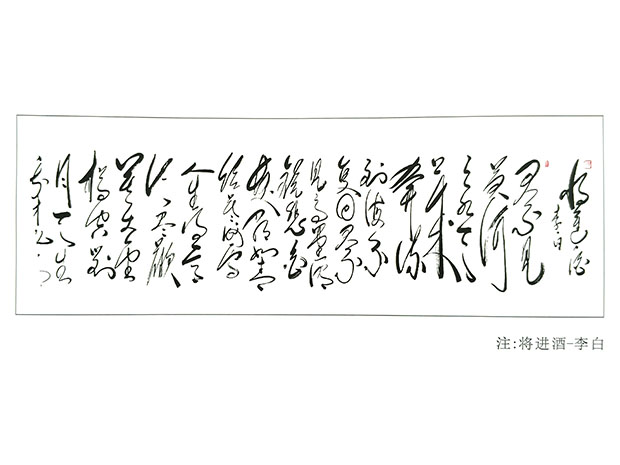 将进酒
李白
君不见
黄河
之水天
上来
奔流
到海不
复回君不
见高堂明
镜悲白
发朝如青
丝暮成雪
人生得意
须尽欢
莫使金
樽空对
月天生
我才必
注:将进酒-李白